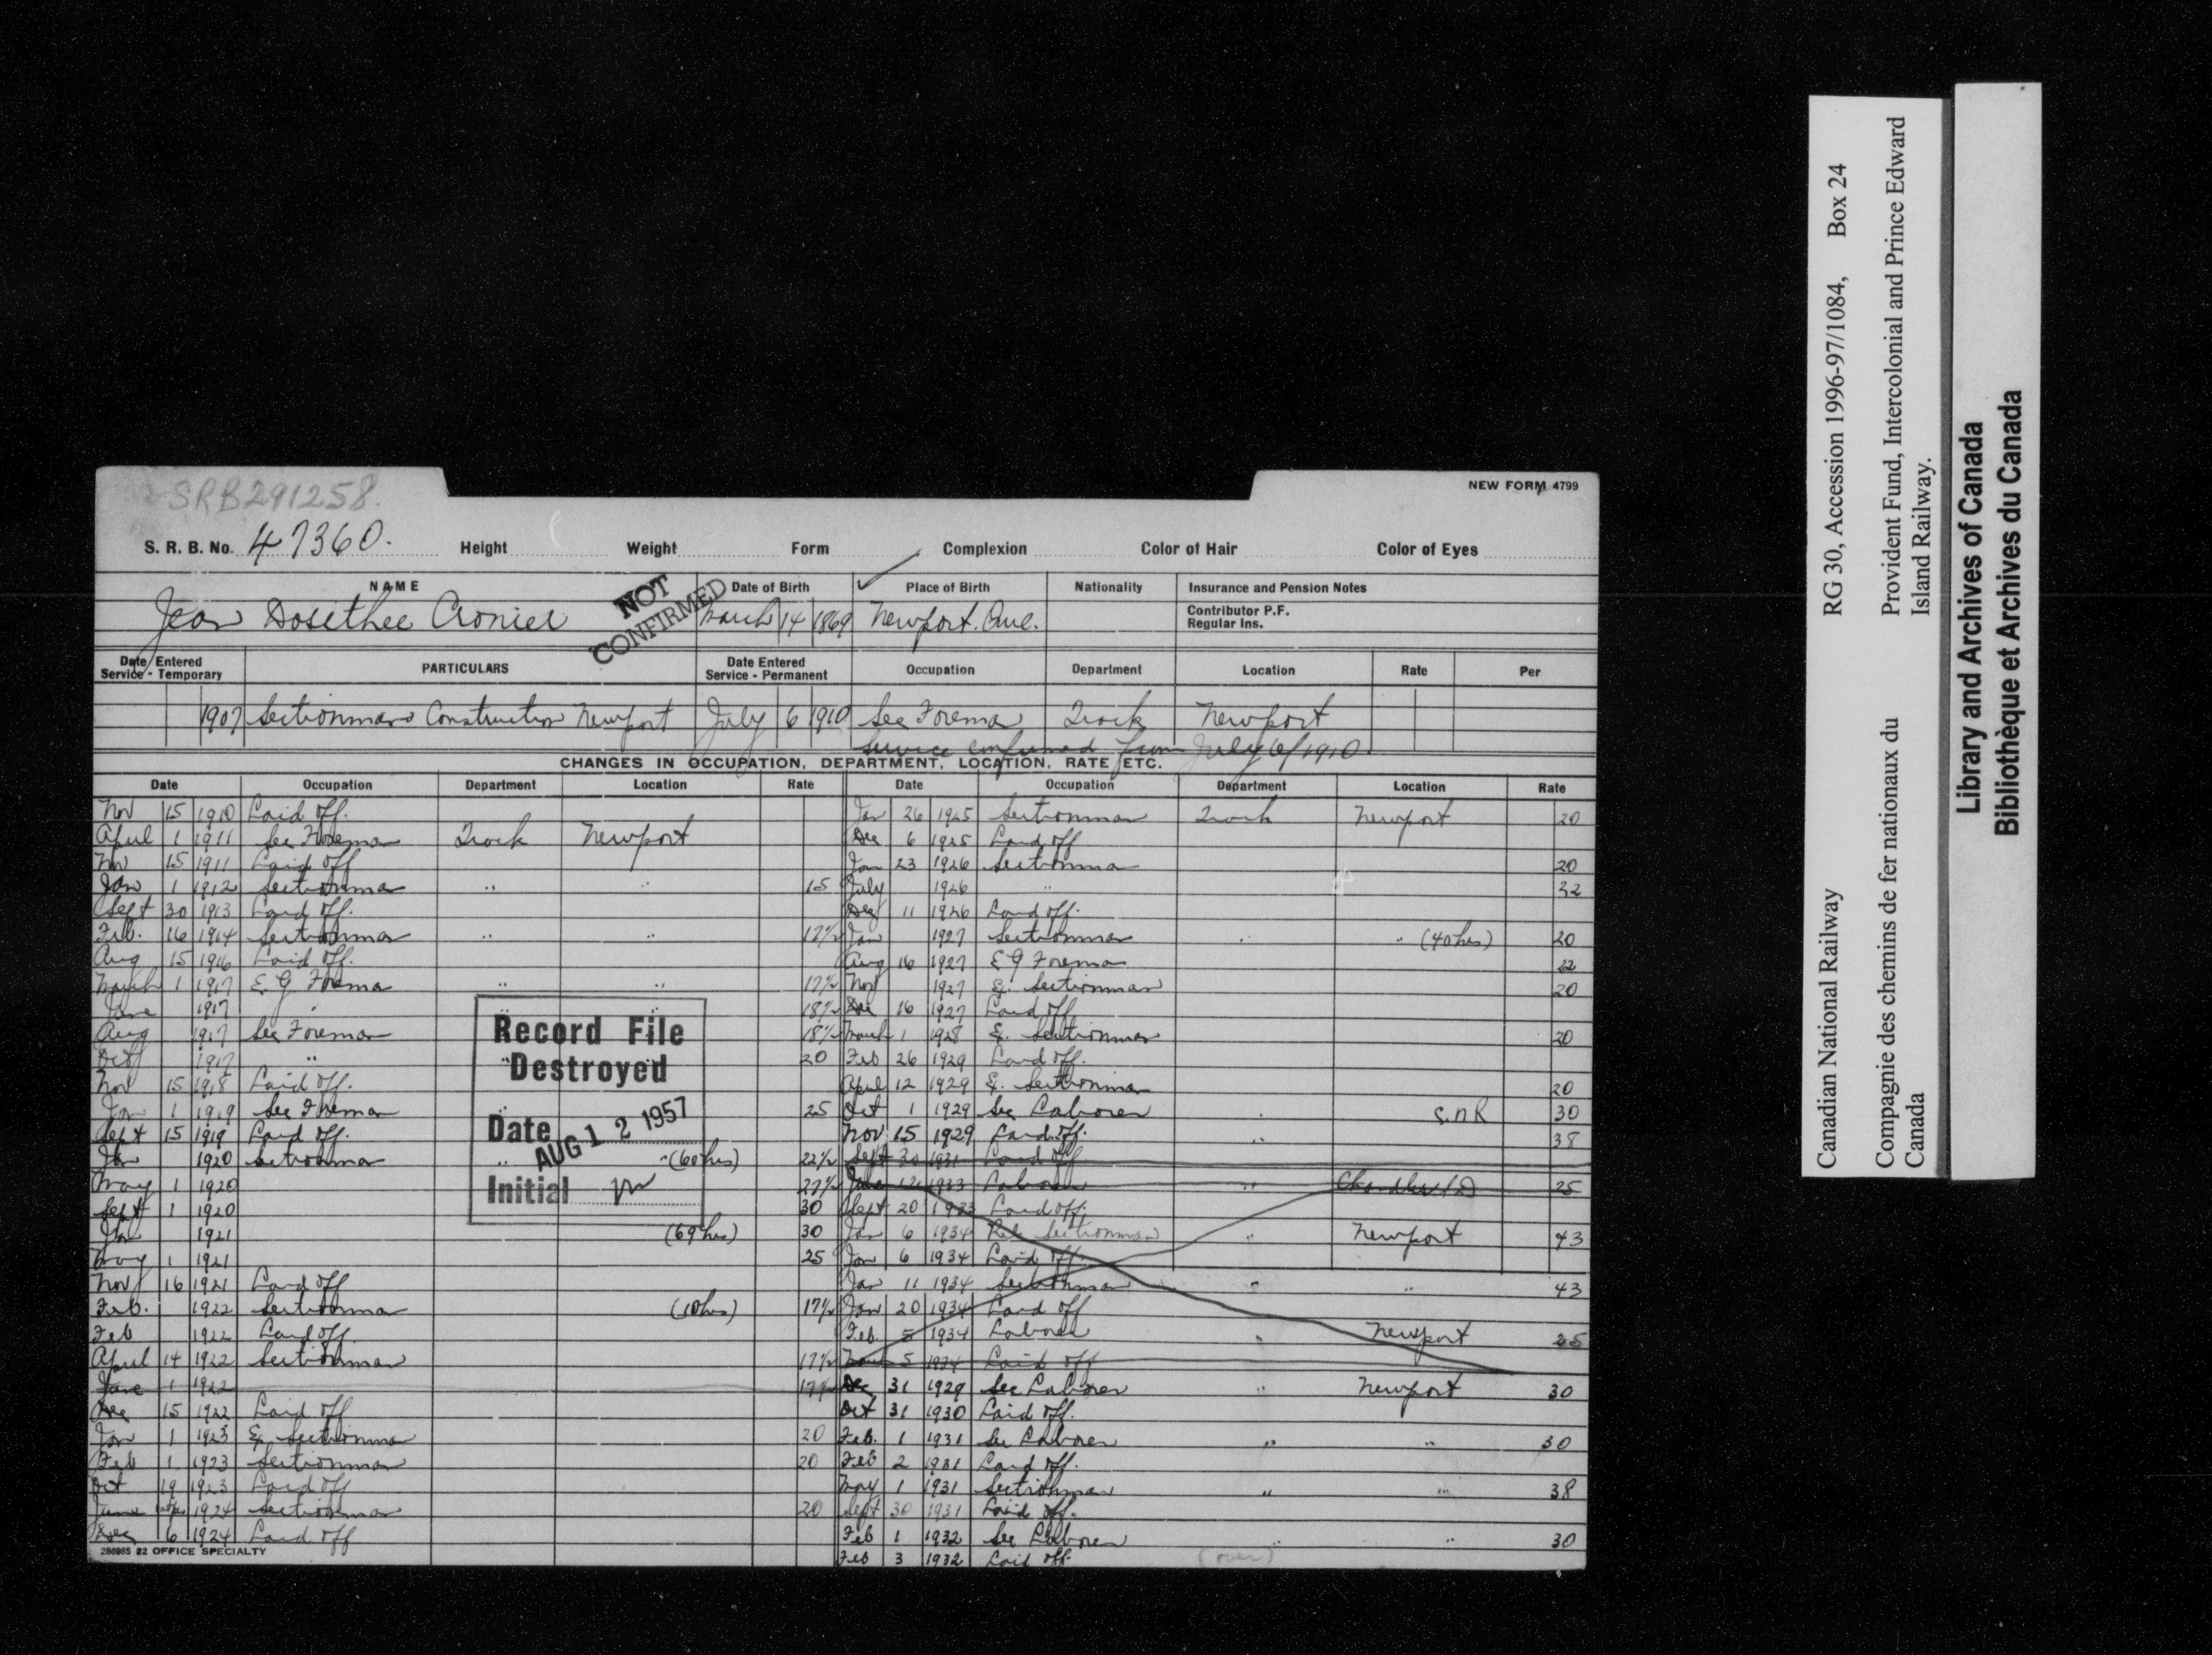 SRB291258.
NEW FORM 4799
S. R. B. No. 47360. Height Weight Form Complexion Color of Hair Color of Eyes
NAME Date of Birth Place of Birth Nationality Insurance and Pension Notes
Jean Dosithee Cronier NOT CONFIRMED March 14 1869 Newport. Que. Contributor P.F. Regular Ins.
Date Entered Service - Temporary PARTICULARS Date Entered Service - Permanent Occupation Department Location Rate Per
1907 Sectionman Construction Newport July 6 1910 Sec Foreman Track Newport
Service confirmed from July 6/1910.
CHANGES IN OCCUPATION, DEPARTMENT, LOCATION, RATE ETC.
Date Occupation Department Location Rate
Nov 15 1910 Laid off.
April 1 1911 Sec Foreman Track Newport
Nov 15 1911 Laid off
Jan 1 1912 Sectionman " " 15
Sept 30 1913 Laid off.
Feb. 16 1914 Sectionman " " 17½
Aug 15 1916 Laid off.
March 1 1917 E. G. Foreman " " 17½
June 1917 " 18½
Aug 1917 Sec Foreman 18½
Oct 1917 " " " 20
Nov 15 1918 Laid off.
Jan 1 1919 Sec Foreman " 25
Sept 15 1919 Laid off.
Jan 1920 Sectionman " " (60hrs) 22½
May 1 1920 27½
Sept 1 1920 30
Jan 1921 (69hrs) 30
May 1 1921 25
Nov 16 1921 Laid off
Feb. 1922 Sectionman (10hrs) 17½
Feb 1922 Laid off.
April 14 1922 Sectionman 17½
June 1 1922 17½
Dec 15 1922 Laid off
Jan 1 1923 Ex. Sectionman 20
Feb 1 1923 Sectionman 20
Oct 19 1923 Laid off
June 1924 Sectionman 20
Dec 6 1924 Laid off
286985 22 OFFICE SPECIALTY
Record File
Destroyed
Date AUG 12 1957
Initial
Date Occupation Department Location Rate
Jan 26 1925 Sectionman Track Newport 20
Dec 6 1925 Laid off
Jan 23 1926 Sectionman 20
July 1926 " 22
Dec 11 1926 Laid off.
Jan 1927 Sectionman " " (40hrs) 20
Aug 16 1927 E G Foreman 22
Nov 1927 Ex. Sectionman 20
Dec 16 1927 Laid off
March 1 1928 Ex. Sectionman 20
Feb 26 1929 Laid off.
April 12 1929 Ex. Sectionman 20
Oct 1 1929 Sec Laborer " S.n R 30
Nov 15 1929 Laid off. " 38
Sept 30 1931 Laid off
June 12 1933 Laborer " Chandler 25
Sept 20 1933 Laid off.
Jan 6 1934 Rel. Sectionman " Newport 43
Jan 6 1934 Laid off.
Jan 11 1934 Sectionman " " 43
Jan 20 1934 Laid off
Feb. 5 1934 Laborer " Newport 25
March 5 1934 Laid off
Dec 31 1929 Sec Laborer " Newport 30
Oct 31 1930 Laid off.
Feb. 1 1931 Sec Laborer " " 30
Feb 2 1931 Laid off.
May 1 1931 Sectionman " " 38
Sept 30 1931 Laid off.
Feb 1 1932 Sec Laborer " " 30
Feb 3 1932 Laid off. (over)
Canadian National Railway RG 30, Accession 1996-97/1084, Box 24
Compagnie des chemins de fer nationaux du Canada
Provident Fund, Intercolonial and Prince Edward Island Railway.
Library and Archives of Canada
Bibliothèque et Archives du Canada